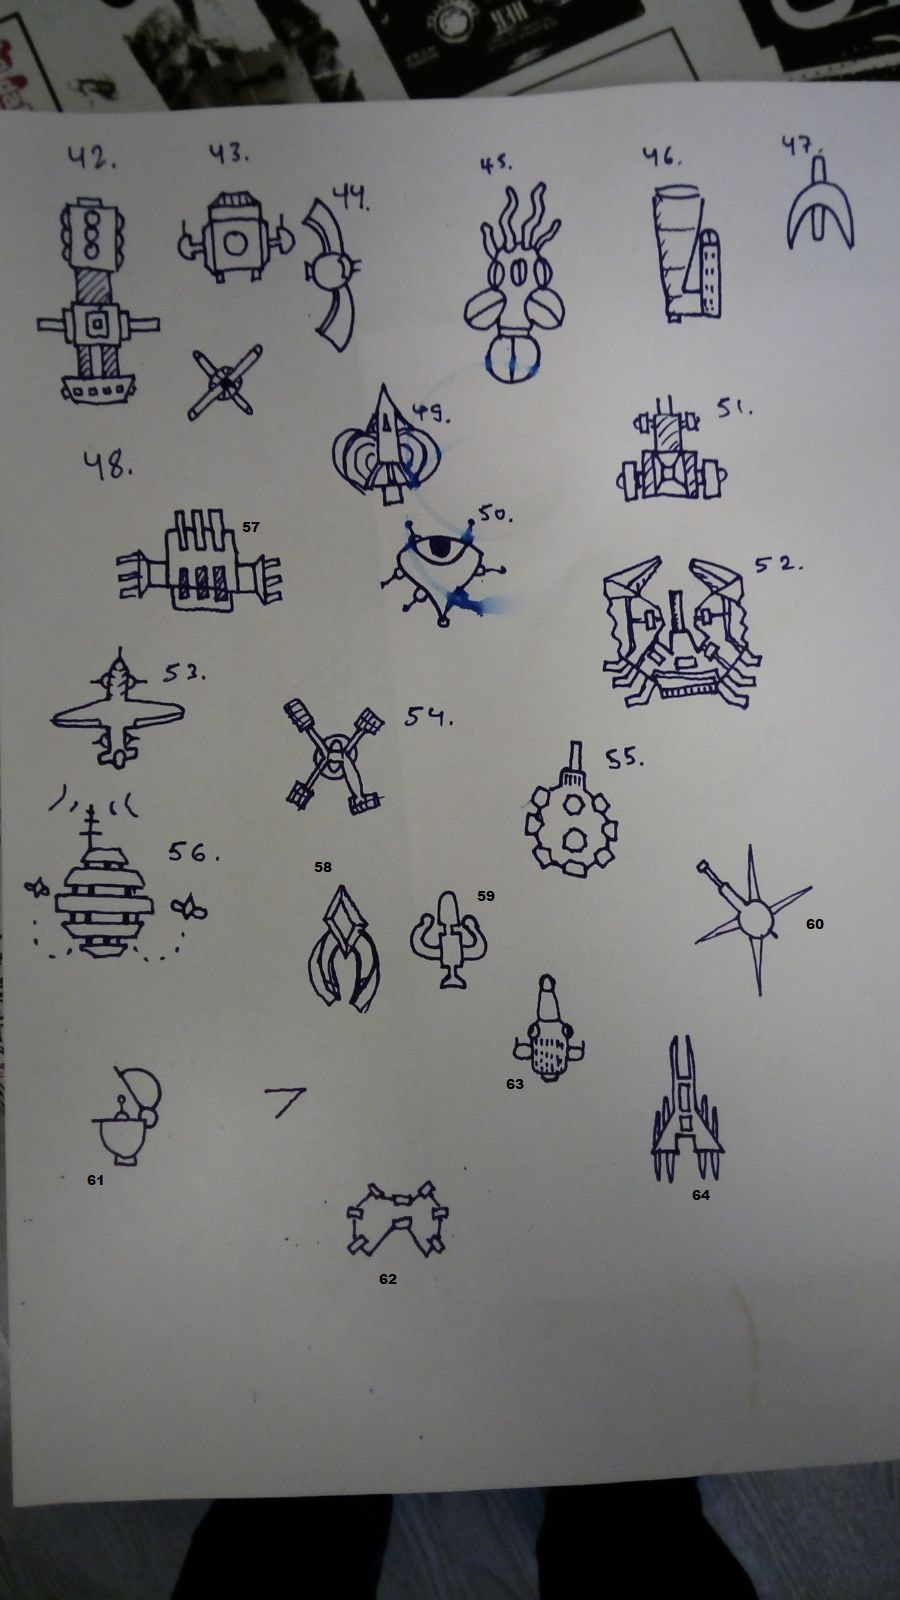 42.
43.
44.
45.
46.
47.
48.
49.
50.
51.
57
52.
53.
54.
55.
56.
58
59
60
63
61
64
62